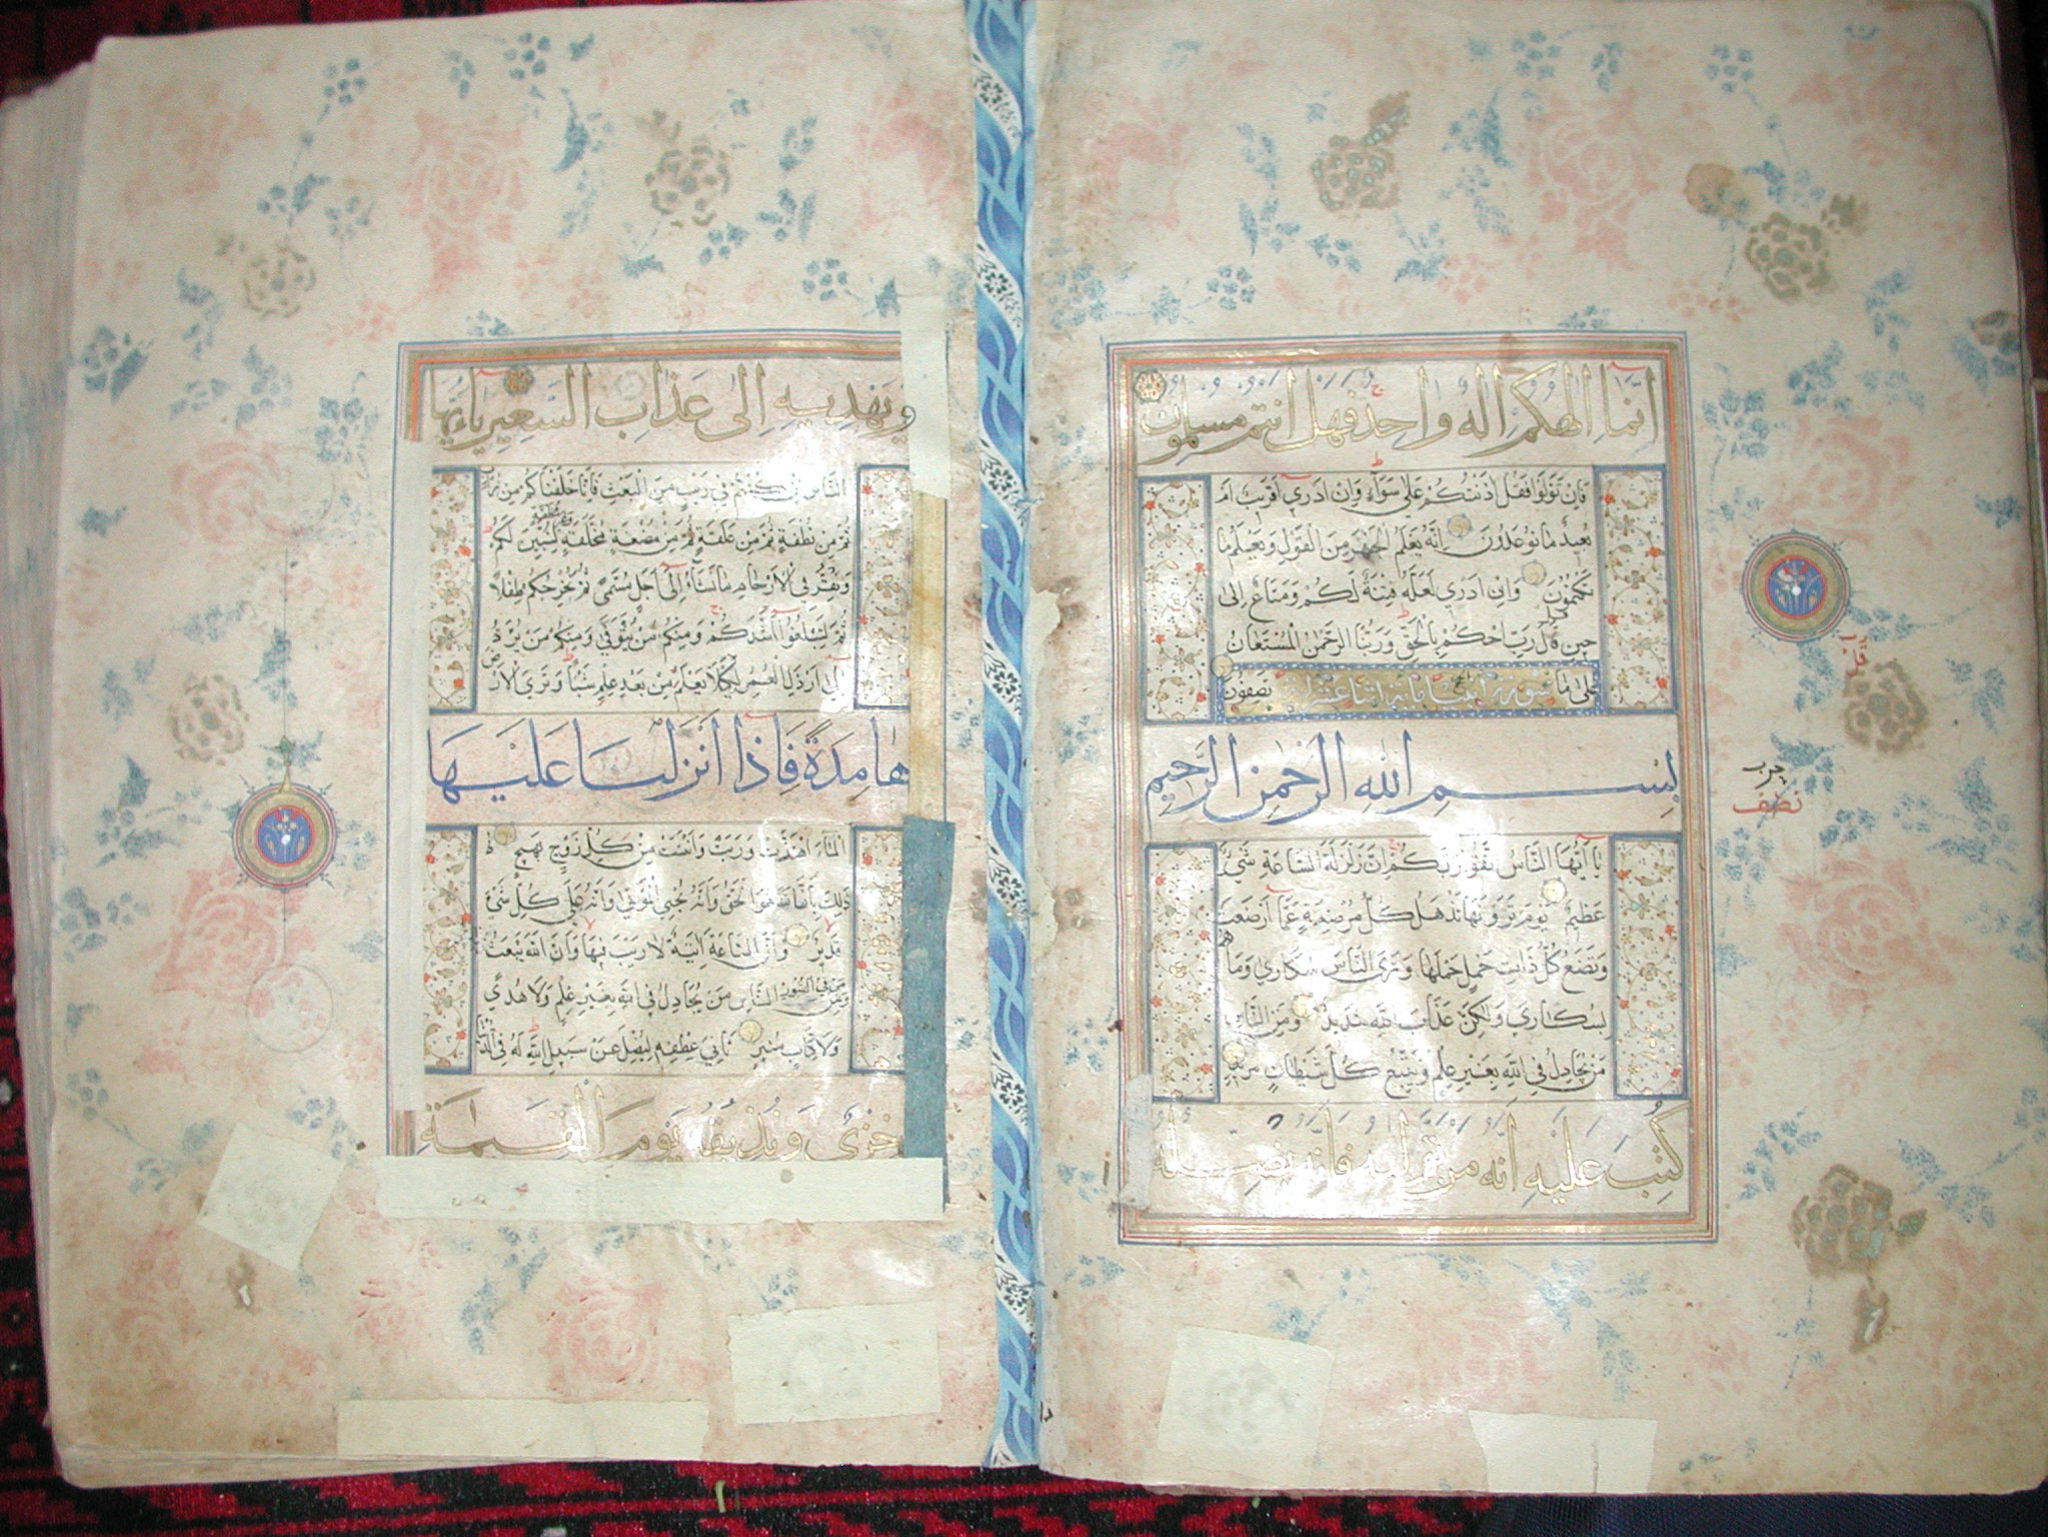 انما الهكم اله واحد فهل انتم مسلمون
فان تولوا فقل اذنتكم على سواء وان ادري اقريب ام
بعيد ما توعدون انه يعلم الجهر من القول ويعلم ما
تكتمون وان ادري لعله فتنة لكم ومتاع الى
حين قل رب احكم بالحق وربنا الرحمن المستعان
على ما تصفون
بسم الله الرحمن الرحيم
يا ايها الناس اتقوا ربكم ان زلزلة الساعة شيء
عظيم يوم ترونها تذهل كل مرضعة عما ارضعت
وتضع كل ذات حمل حملها وترى الناس سكارى وما هم
بسكارى ولكن عذاب الله شديد ومن الناس
من يجادل في الله بغير علم ويتبع كل شيطان مريد
كتب عليه انه من تولاه فانه يضله
حزب
نصف
ويهديه الى عذاب السعير يا ايها
الناس ان كنتم في ريب من البعث فانا خلقناكم من تراب
ثم من نطفة ثم من علقة ثم من مضغة مخلقة وغير مخلقة لنبين لكم
ونقر في الارحام ما نشاء الى اجل مسمى ثم نخرجكم طفلا
ثم لتبلغوا اشدكم ومنكم من يتوفى ومنكم من يرد
الى ارذل العمر لكيلا يعلم من بعد علم شيئا وترى الارض
هامدة فاذا انزلنا عليها
الماء اهتزت وربت وانبتت من كل زوج بهيج
ذلك بان الله هو الحق وانه يحيي الموتى وانه على كل شيء
قدير وان الساعة اتية لا ريب فيها وان الله يبعث
من في القبور ومن الناس من يجادل في الله بغير علم ولا هدى
ولا كتاب منير ثاني عطفه ليضل عن سبيل الله له في الدنيا
خزي ونذيقه يوم القيمة